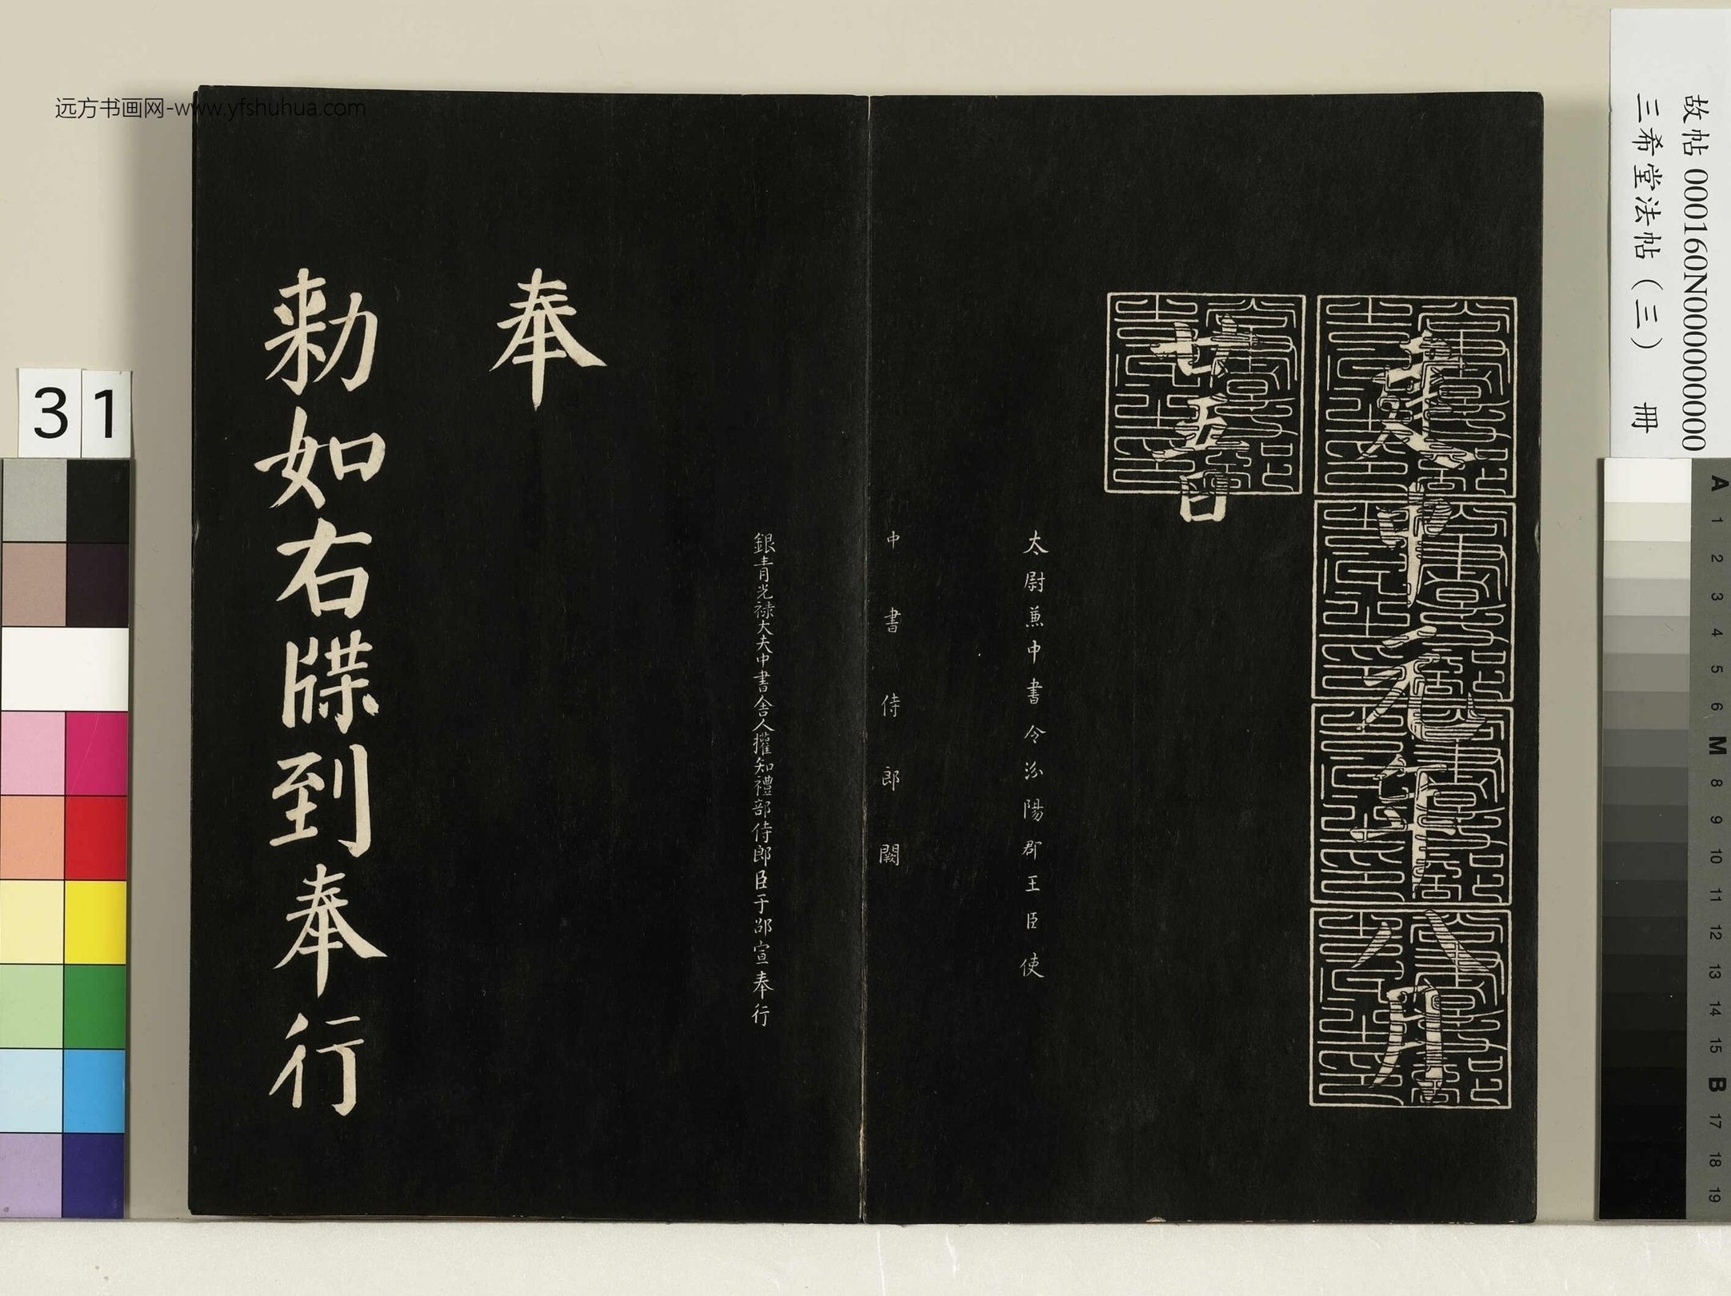 远方书画网-www.yfshuhua.com
故帖 000160N000000000
三希堂法帖（三） 冊
建中元年八月
廿五日
太尉兼中書令汾陽郡王臣使
中書侍郎闕
銀青光禄大夫中書舍人權知禮部侍郎臣于邵宣奉行
奉
勅如右牒到奉行
31
A 1 2 3 4 5 6 M 8 9 10 11 12 13 14 15 B 17 18 19